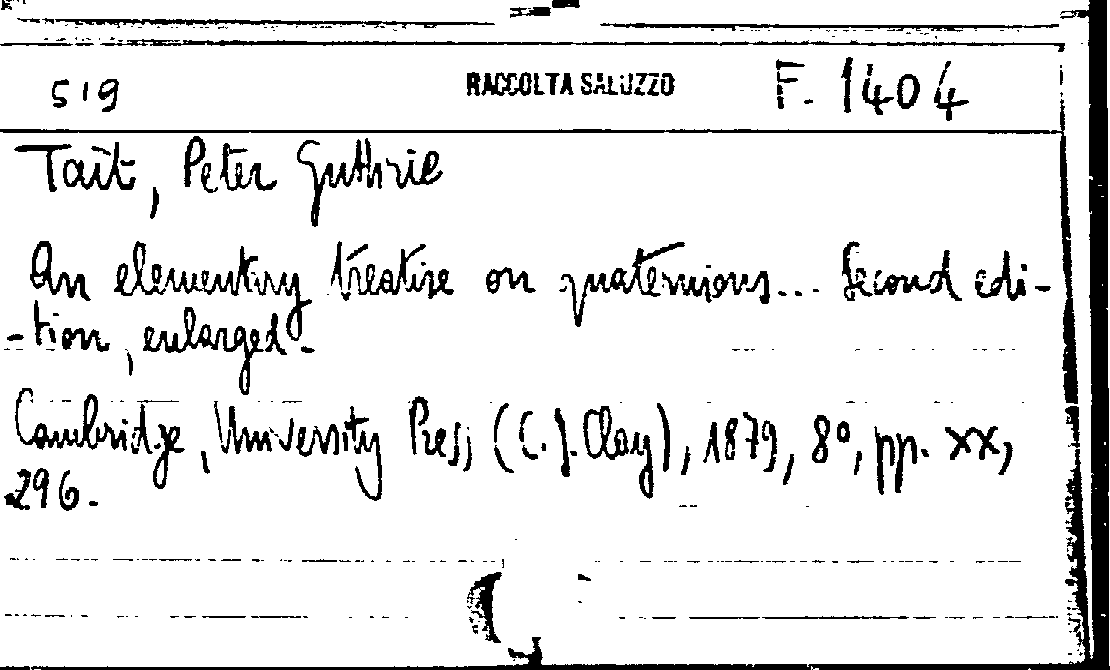 519 RACCOLTA SALUZZO F. 1404
Tait, Peter Guthrie
An elementary treatise on quaternions... Second edi-
-tion, enlarged.
Cambridge, University Press (C. J. Clay), 1879, 8°, pp. XX,
296.